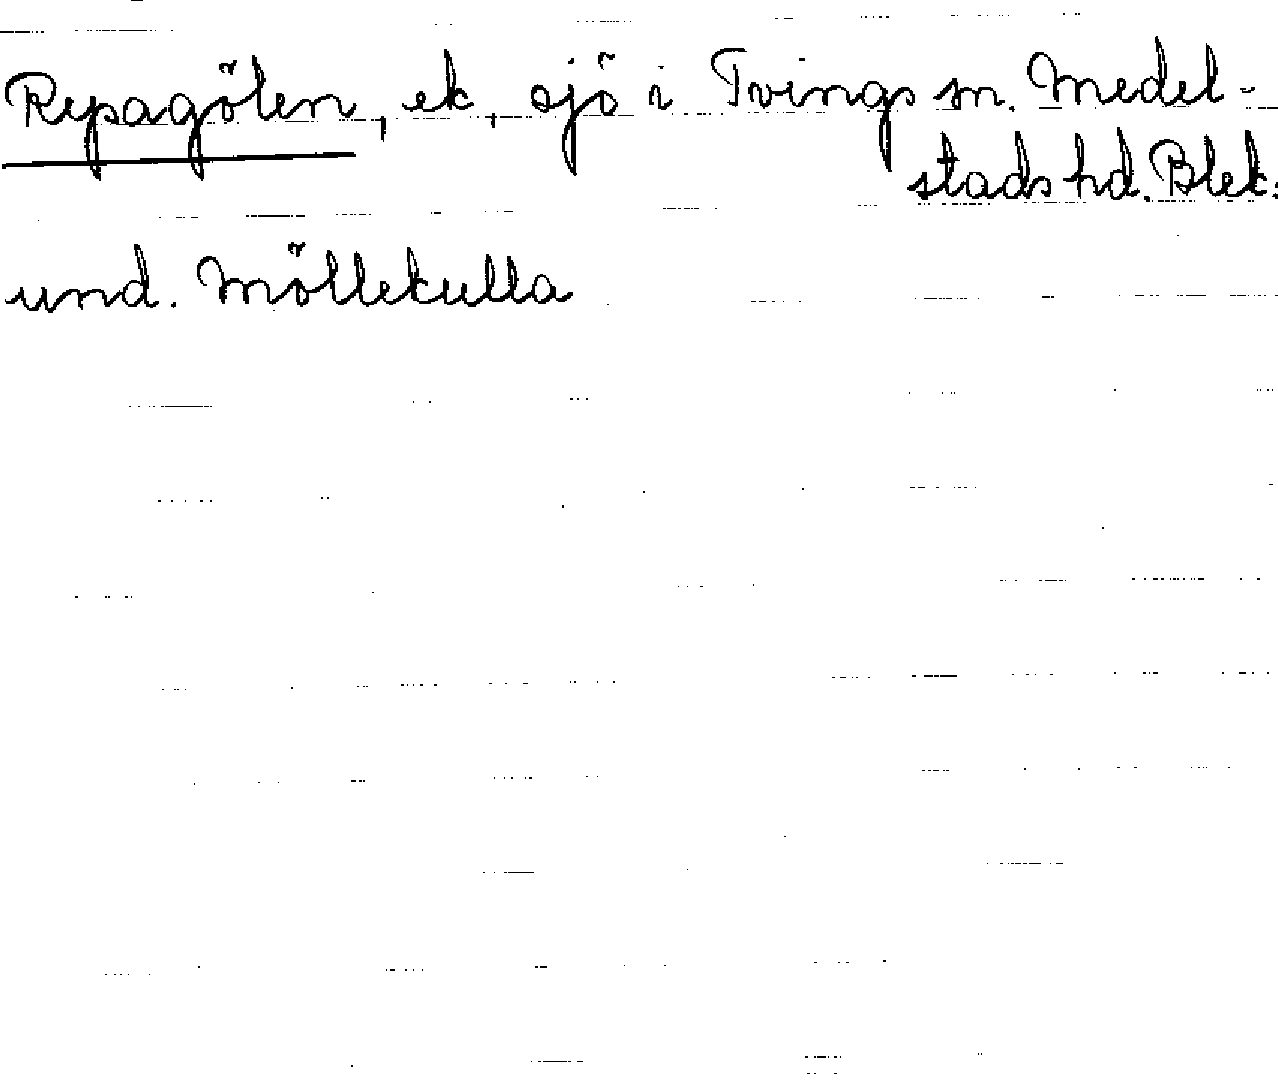 Repagölen, ek, sjö i Tvings sn. Medel-
stads hd. Blek.
und. Möllekulla